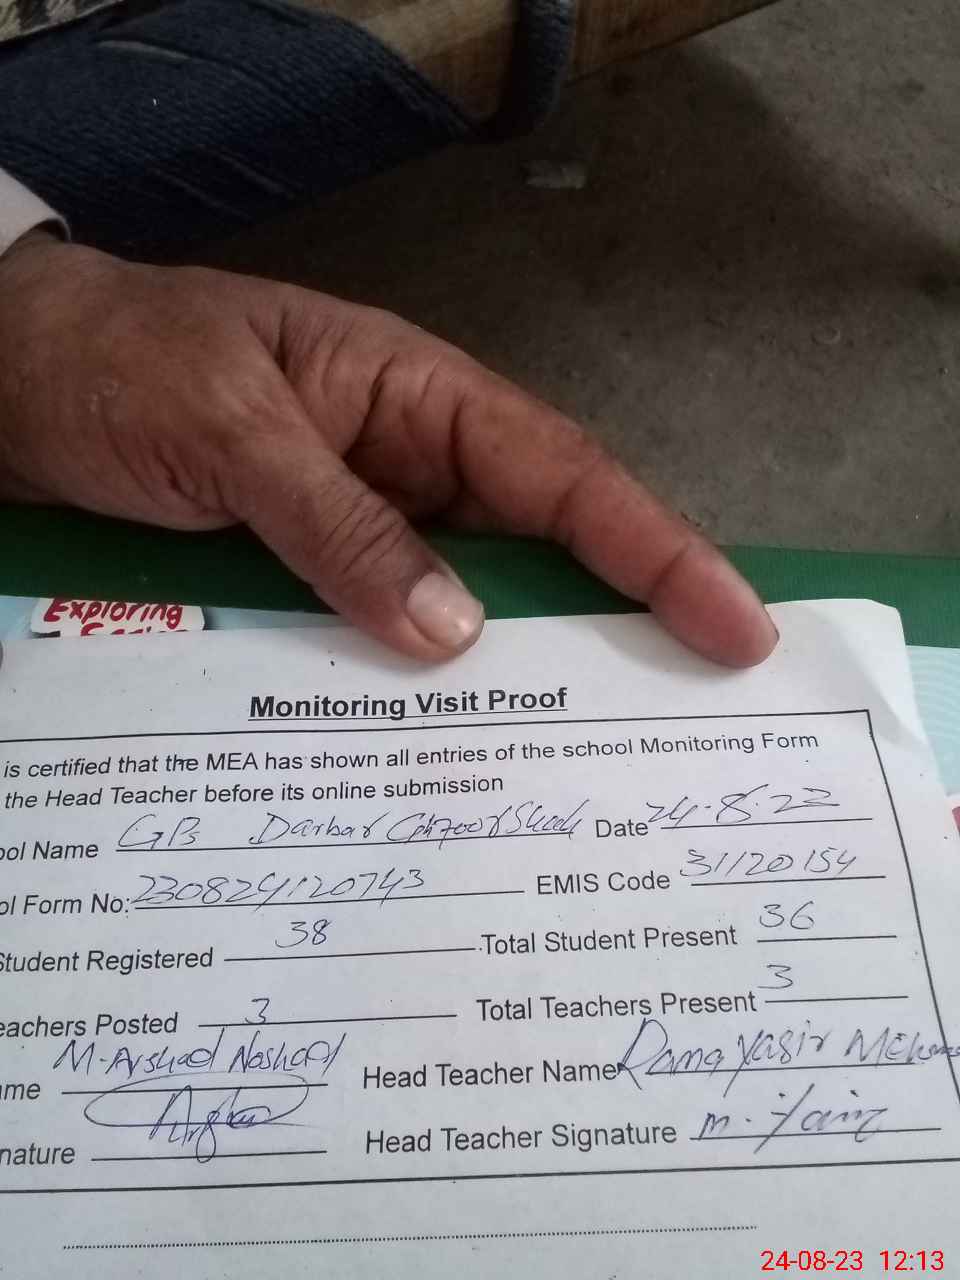 Exploring
Monitoring Visit Proof
is certified that the MEA has shown all entries of the school Monitoring Form
the Head Teacher before its online submission
ool Name GPS Darbar Date 24-8-23
ol Form No: 230824120743 EMIS Code 31120154
Student Registered 38 Total Student Present 36
eachers Posted 3 Total Teachers Present 3
ame M-Arshad Noshad Head Teacher Name Rana Yasir
nature Head Teacher Signature
24-08-23 12:13